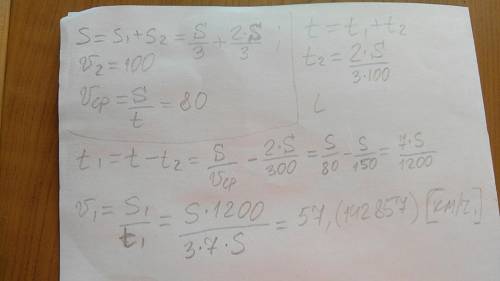 S = S₁ + S₂ = S/3 + 2·S/3 ;
v₂ = 100
vср = S/t = 80
t = t₁ + t₂
t₂ = 2·S/3·100
t₁ = t − t₂ = S/vср − 2·S/300 = S/80 − S/150 = 7·S/1200
v₁ = S₁/t₁ = S·1200/3·7·S = 57,(142857) [км/ч]